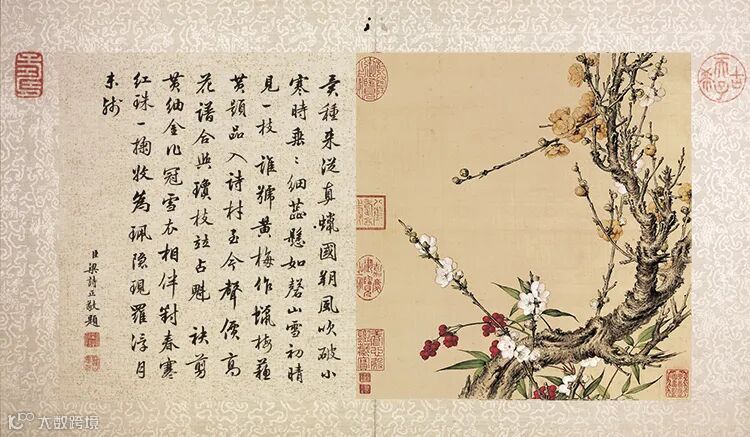 種来從真蠟國朔風吹破小
寒時垂〻細蕊懸如磬山雪初晴
見一枝誰號黄梅作蠟梅蘇
黄題品入詩材至今聲價高
花譜合與瓊枝竝占魁 袂剪
黄紬金作冠雪衣相伴對春寒
紅珠一掬收為珮隐現羅浮月
未殘
臣梁詩正敬題
古希天子
大数跨境